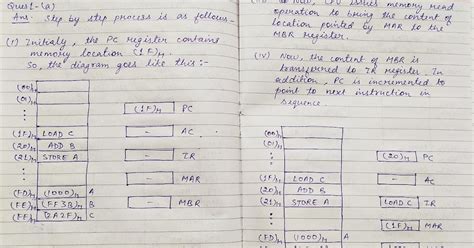 Quest-(a)
Ans. Step by step process is as follows-
(i) Initialy, the PC register contains
memory location (1F)H.
So, the diagram goes like this :-
(00)H
(01)H
(1F)H LOAD C
(20)H ADD B
(21)H STORE A
(FD)H (1000)H A
(FE)H (FF3B)H B
(FF)H (2A2F)H C
(1F)H PC
- AC
- IR
- MAR
- MBR
CPU issues memory read
operation to bring the content of
location pointed by MAR to the
MBR register.
(iv) Now, the content of MBR is
transferred to IR register. In
addition, PC is incremented to
point to next instruction in
sequence.
(00)H
(01)H
(1F)H LOAD C
(20)H ADD B
(21)H STORE A
(FD)H (1000)H A
(20)H PC
- AC
LOAD C IR
(1F)H MAR